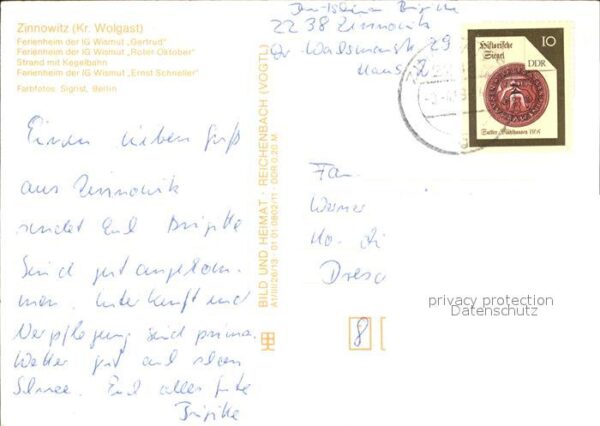 Zinnowitz (Kr. Wolgast)
Ferienheim der IG Wismut „Gertrud“
Ferienheim der IG Wismut „Roter Oktober“
Strand mit Kegelbahn
Ferienheim der IG Wismut „Ernst Schneller“
Farbfotos: Sigrist, Berlin
Einen lieben Gruß
aus Zinnowitz
sendet Euch Brigitte
Sind gut angekom-
men. Unterkunft und
Verpflegung sind prima.
Wetter gut auch schon
Schnee. Euch alles Gute
Brigitte
BILD UND HEIMAT · REICHENBACH (VOGTL)
A1/III/26/13 · 01 01 0802/11 · DDR 0,20 M
Brigitte
2238 Zinnowitz
Dr. Wachsmannstr. 29
Haus 2
Historische
Siegel
10
DDR
Fam.
Werner
Dresd
8
privacy protection
Datenschutz